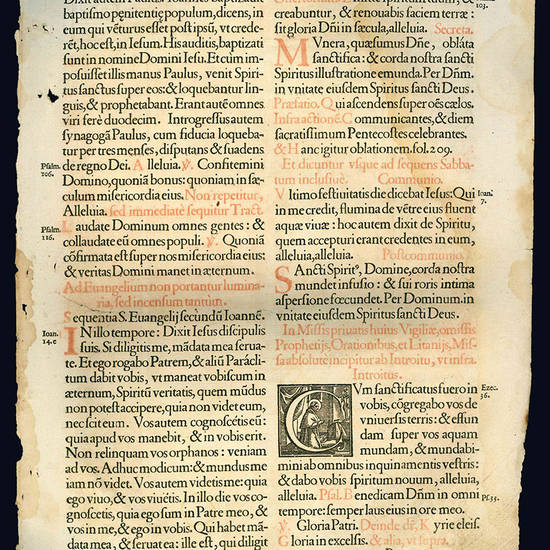 baptismo pęnitentię populum, dicens, in
eum qui vēturus esset post ipsū, vt crede-
rēt, hoc est, in Iesum. His auditis, baptizati
sunt in nomine Domini Iesu. Et cum im-
posuisset illis manus Paulus, venit Spiri-
tus sanctus super eos: & loquebantur lin-
guis, & prophetabant. Erant autē omnes
viri ferè duodecim. Introgressus autem
synagogā Paulus, cum fiducia loqueba-
tur per tres menses, disputans & suadens
Psalm. 106.
de regno Dei. Alleluia. ℣. Confitemini
Domino, quoniā bonus: quoniam in sæ-
culum misericordia eius. Non repetitur,
Alleluia. sed immediatè sequitur Tract.
Psalm. 116.
Laudate Dominum omnes gentes: &
collaudate eū omnes populi. ℣. Quoniā
cōfirmata est super nos misericordia eius:
& veritas Domini manet in æternum.
Ad Euangelium non portantur lumina-
ria, sed incensum tantùm.
Sequentia S. Euangelij secūdū Ioannē.
Ioan. 14.c
IN illo tempore: Dixit Iesus discipulis
suis. Si diligitis me, mādata mea serua-
te. Et ego rogabo Patrem, & aliū Parácli-
tum dabit vobis, vt maneat vobiscum in
æternum, Spiritū veritatis, quem mūdus
non potest accipere, quia non videt eum,
nec scit eum. Vos autem cognoscétis eū:
quia apud vos manebit, & in vobis erit.
Non relinquam vos orphanos: veniam
ad vos. Adhuc modicum: & mundus me
iam nō videt. Vos autem videtis me: quia
ego viuo, & vos viuétis. In illo die vos co-
gnoscetis, quia ego sum in Patre meo, &
vos in me, & ego in vobis. Qui habet mā-
data mea, & seruat ea: ille est, qui diligit
103.
creabuntur, & renouabis faciem terræ:
sit gloria Dñi in sæcula, alleluia. Secreta.
MVnera, quæsumus Dñe, obláta
sanctifica: & corda nostra sancti
Spiritus illustratione emunda. Per Dñm.
in vnitate eiusdem Spiritus sancti Deus.
Præfatio. Qui ascendens super oēs cælos.
Infra actionē. Communicantes, & diem
sacratissimum Pentecostes celebrantes.
& Hanc igitur oblationem. fol. 209.
Et dicuntur vsque ad sequens Sabba-
tum inclusiuè. Communio.
Vltimo festiuitatis die dicebat Iesus: Qui
Ioan. 7.
in me credit, flumina de vētre eius fluent
aquæ viuæ: hoc autem dixit de Spiritu,
quem accepturi erant credentes in eum,
alleluia, alleluia. Postcommunio.
SAncti Spirit9, Domine, corda nostra
mundet infusio: & sui roris intima
aspersione fœcundet. Per Dominum. in
vnitate eiusdem Spiritus sancti Deus.
In Missis priuatis huius Vigiliæ, omissis
Prophetijs, Orationibus, et Litanijs, Mis-
sa absolute incipitur ab Introitu, vt infra.
Introitus.
CVm sanctificatus fuero in
Ezec. 36.
vobis, cōgregabo vos de
vniuersis terris: & effun-
dam super vos aquam
mundam, & mundabi-
mini ab omnibus inquinamentis vestris:
& dabo vobis spiritum nouum, alleluia,
alleluia. Psal. Benedicam Dñm in omni
Ps. 33.
tempore: semper laus eius in ore meo.
℣. Gloria Patri. Deinde dr, Kyrie eleis.
Gloria in excelsis. & alia, vt supra.